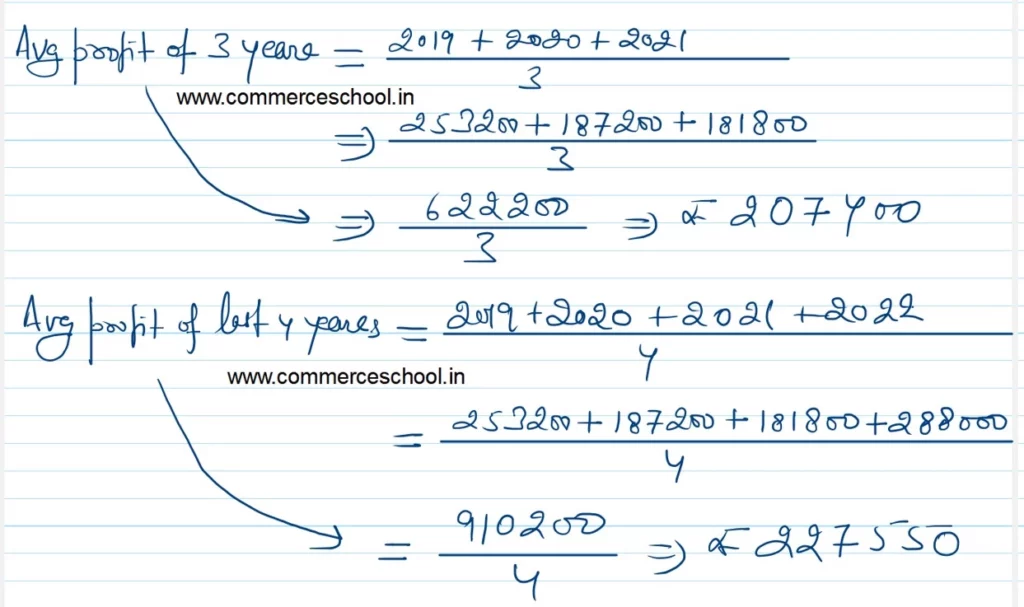 Avg profit of 3 years = 2019 + 2020 + 2021
3
www.commerceschool.in
⇒ 253200 + 187200 + 181800
3
⇒ 622200 ⇒ ₹ 207400
3
Avg profit of last 4 years = 2019 + 2020 + 2021 + 2022
4
www.commerceschool.in
= 253200 + 187200 + 181800 + 288000
4
= 910200 ⇒ ₹ 227550
4